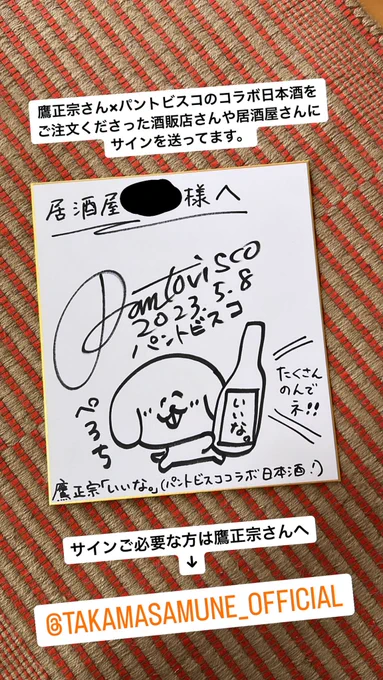 鷹正宗さん×パントビスコのコラボ日本酒を
ご注文くださった酒販店さんや居酒屋さんに
サインを送ってます。
居酒屋 様へ
Pantovisco
2023.5.8
パントビスコ
たくさん
のんで
ネ!!
いいな。
ぺろち
鷹正宗「いいな。」(パントビスココラボ日本酒!)
サインご必要な方は鷹正宗さんへ
↓
@TAKAMASAMUNE_OFFICIAL